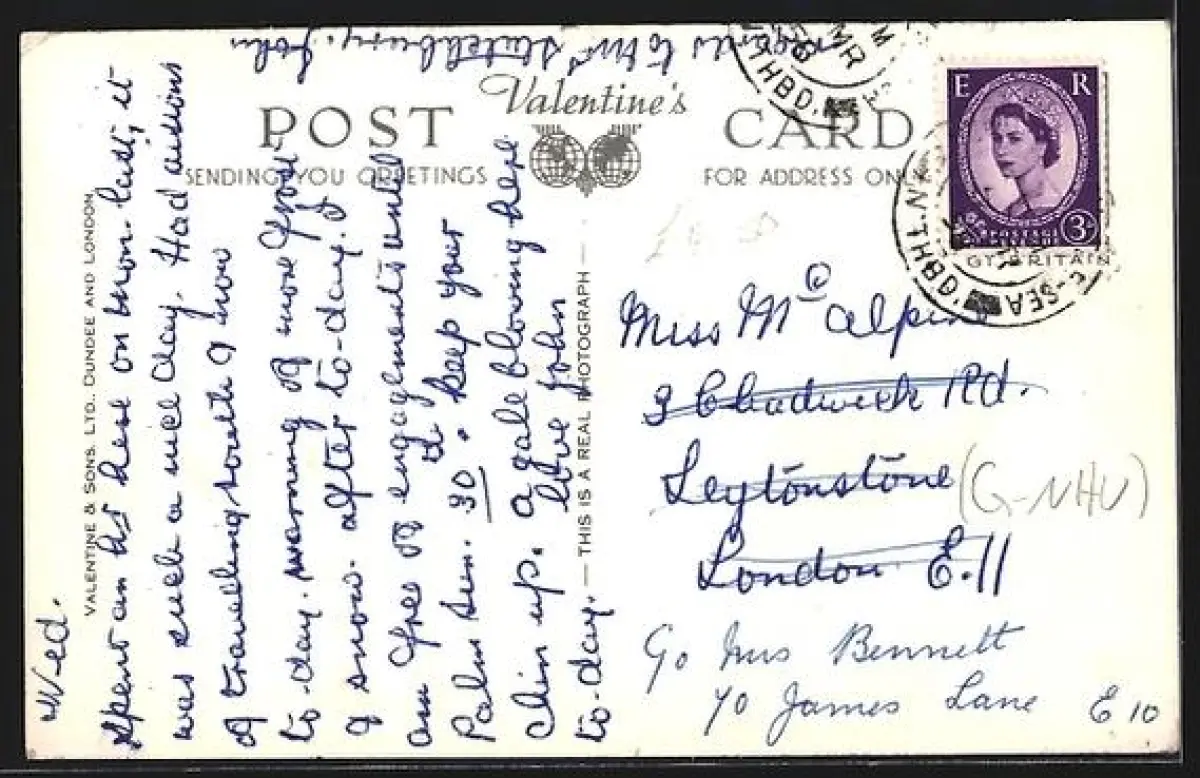 POST Valentine's CARD
SENDING YOU GREETINGS
FOR ADDRESS ONLY
VALENTINE & SONS. LTD., DUNDEE AND LONDON
— THIS IS A REAL PHOTOGRAPH —
Wed.
Spent an hr here on Mon. last, it
was such a nice day. Had visions
of travelling south & now
to-day. warning of more frost
& snow. after to-day. I
am free of engagements until
Palm Sun. 30th. keep your
chin up. a gale blowing here
to-day. love John
regards to Mrs John
E R
POSTAGE
REVENUE
3D
GT. BRITAIN
MR
THBD.
-SEA
N'THBD.
Miss Mc Alpine
3 Chadwick Rd.
Leytonstone
(G-NHU)
London E.11
c/o Mrs Bennett
70 James Lane E10